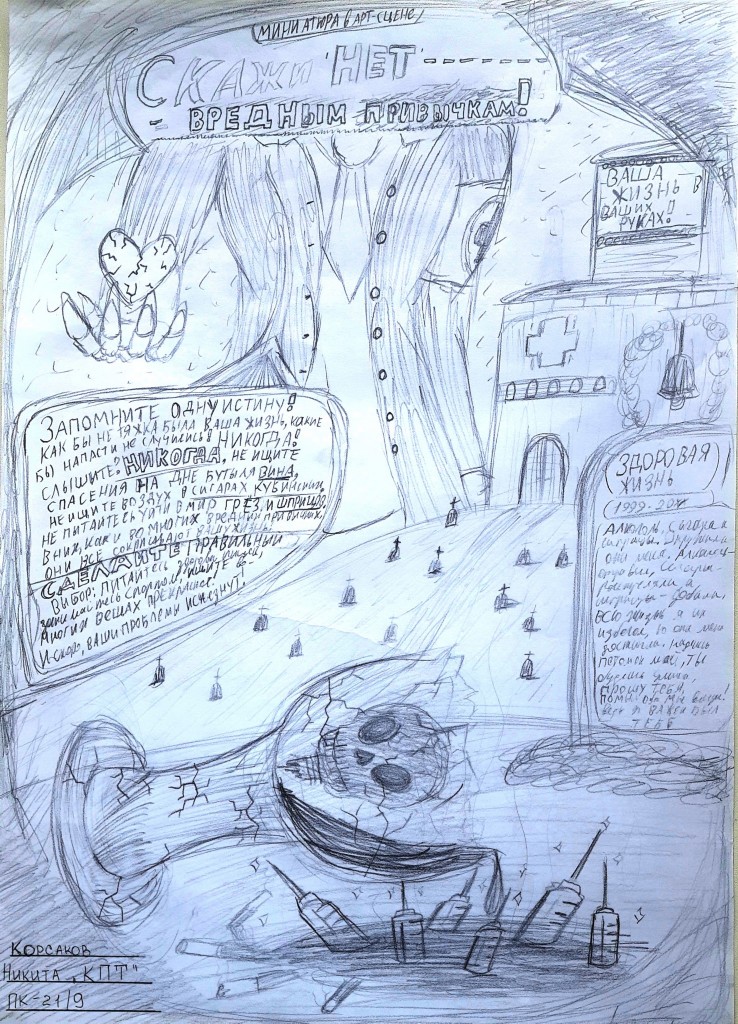 МИНИАТЮРА В АРТ-СЦЕНЕ
СКАЖИ "НЕТ"
- ВРЕДНЫМ ПРИВЫЧКАМ!
ВАША
ЖИЗНЬ В
ВАШИХ
РУКАХ!
ЗАПОМНИТЕ ОДНУ ИСТИНУ!
КАК БЫ НЕ ТЯЖКА БЫЛА ВАША ЖИЗНЬ, КАКИЕ
БЫ НАПАСТИ НЕ СЛУЧИЛИСЬ НИКОГДА!
СЛЫШИТЕ? НИКОГДА, НЕ ИЩИТЕ
СПАСЕНИЯ НА ДНЕ БУТЫЛЯ ВИНА,
НЕ ИЩИТЕ ВОЗДУХ В СИГАРАХ КУБИНСКИХ,
НЕ ПИТАЙТЕСЬ УЙТИ В МИР ГРЁЗ И ШПРИЦОВ.
В НИХ, КАК И ВО МНОГИХ ВРЕДНЫХ ПРИВЫЧКАХ,
ОНИ ВСЕ СОКРАЩАЮТ ВАШУ ЖИЗНЬ
СДЕЛАЙТЕ ПРАВИЛЬНЫЙ
ВЫБОР: ПИТАЙТЕСЬ ЗДОРОВОЙ ПИЩЕЙ,
ЗАНИМАЙТЕСЬ СПОРТОМ, ИЩИТЕ В
МНОГИХ ВЕЩАХ ПРЕКРАСНОЕ!
И СКОРО, ВАШИ ПРОБЛЕМЫ ИСЧЕЗНУТ!
(ЗДОРОВАЯ)
ЖИЗНЬ
АЛКОГОЛЬ, СИГАРА И
ШПРИЦЫ. ОКРУЖИЛИ
ОНИ МЕНЯ.
ВСЮ ЖИЗНЬ Я ИХ
ИЗБЕГАЛ, НО ОНИ МЕНЯ
ПОТОМОК МОЙ, ТЫ
ПРОШУ ТЕБЯ,
ТЕБЕ
КОРСАКОВ
НИКИТА "КПТ"
ПК-21/9